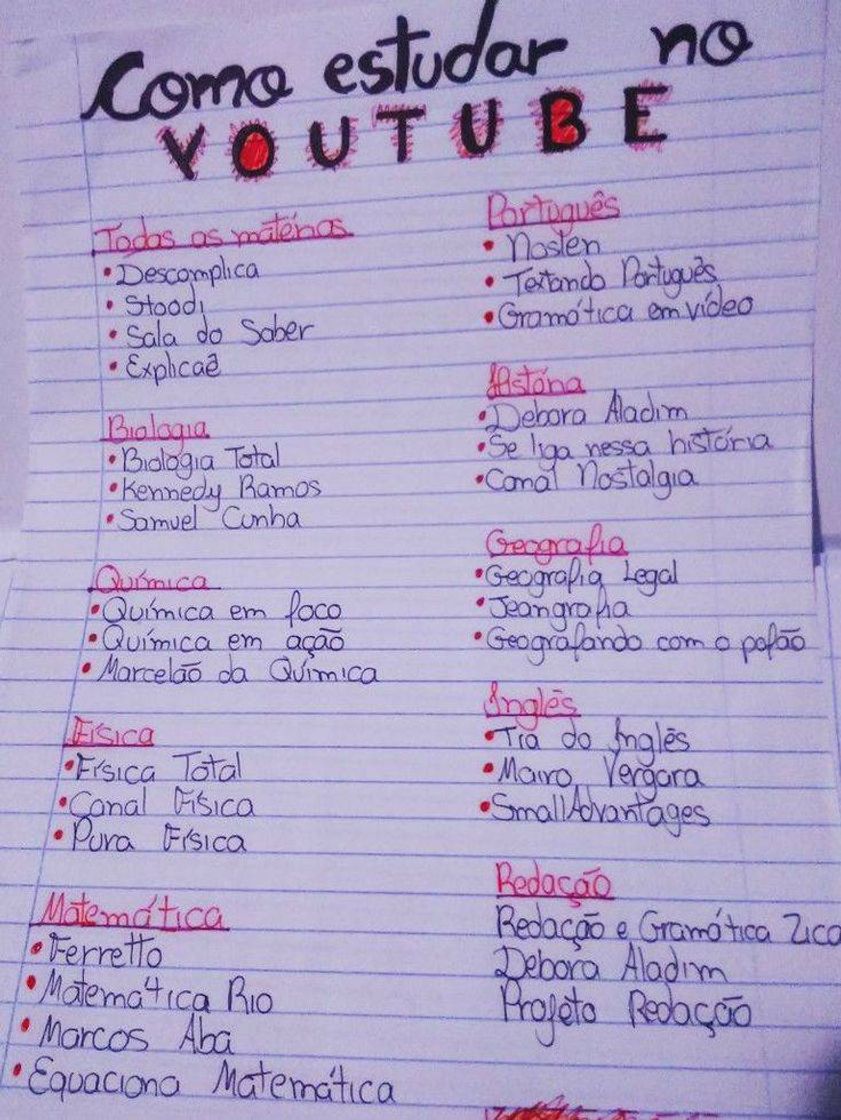 Como estudar no
YOUTUBE
Todas as matérias
• Descomplica
• Stoodi
• Sala do Saber
• Explicaê
Biologia
• Biologia Total
• Kennedy Ramos
• Samuel Cunha
Química
• Química em foco
• Química em ação
• Marcelão da Química
Física
• Física Total
• Canal Física
• Pura Física
Matemática
• Ferretto
• Matemática Rio
• Marcos Aba
• Equaciona Matemática
Português
• Noslen
• Textando Português
• Gramática em vídeo
História
• Debora Aladim
• Se liga nessa história
• Canal Nostalgia
Geografia
• Geografia Legal
• Jeangrafia
• Geografando com o pofão
Inglês
• Tia do Inglês
• Mairo Vergara
• SmallAdvantages
Redação
Redação e Gramática Zica
Debora Aladim
Projeto Redação